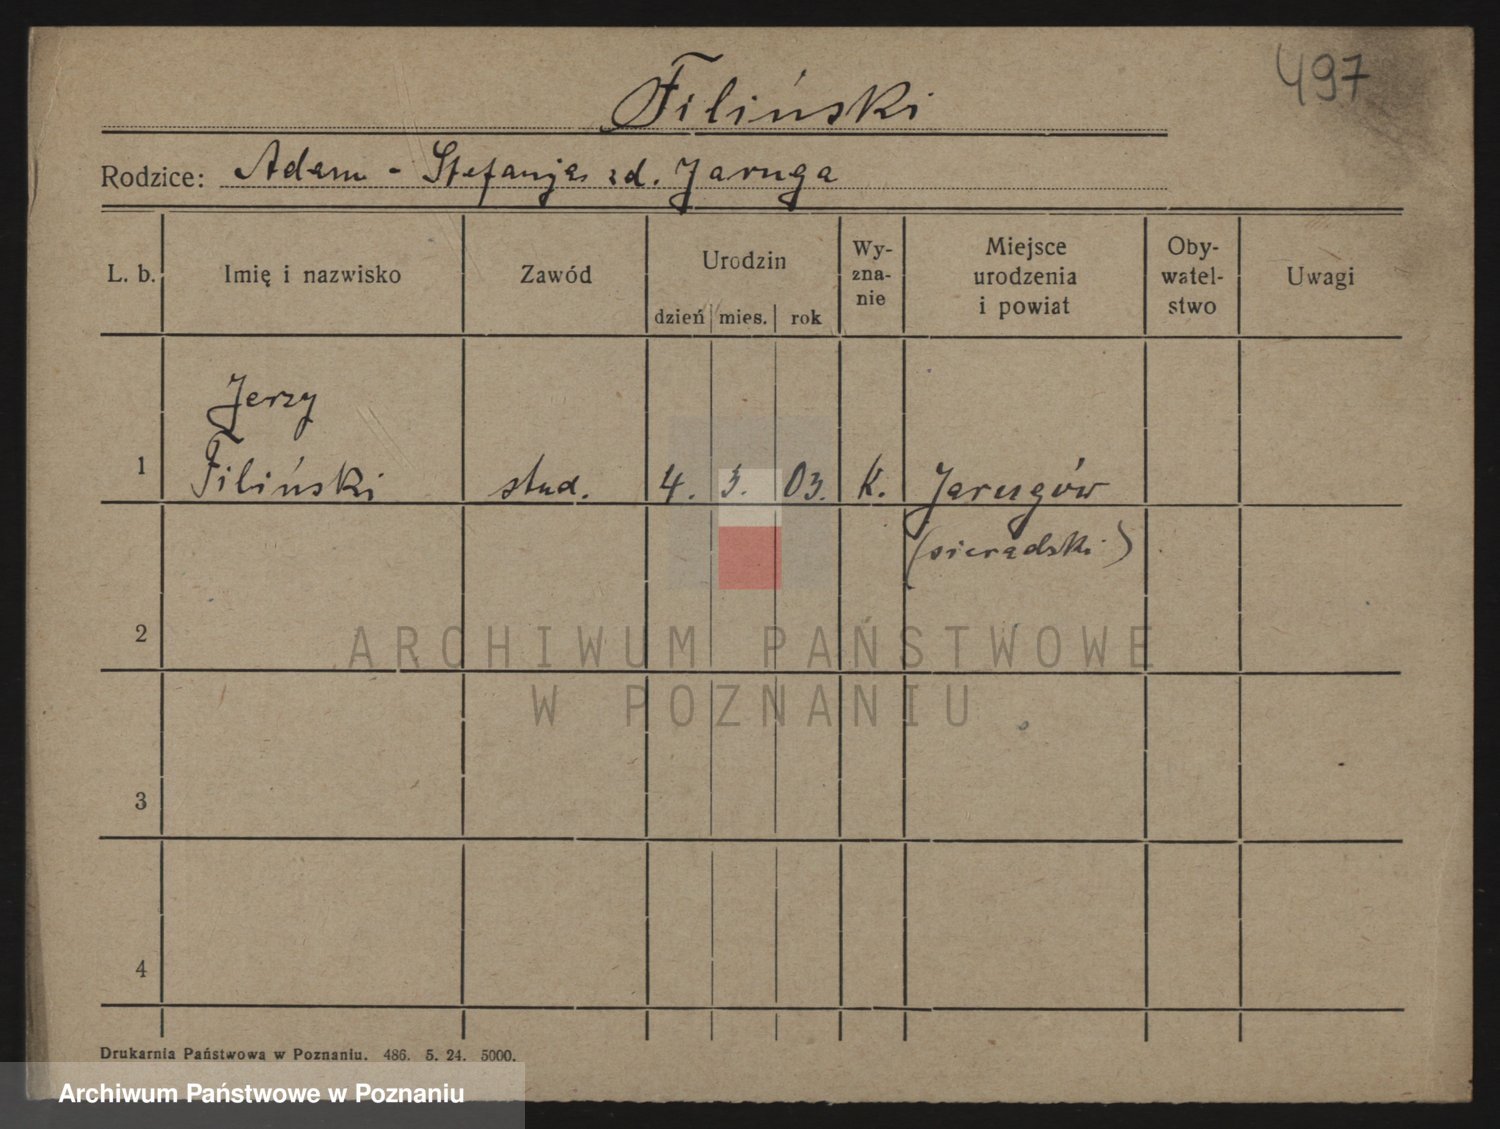 497
Filiński
Rodzice: Adam - Stefanja zd. Jaruga
L. b.
Imię i nazwisko
Zawód
Urodzin
dzień mies. rok
Wy-
zna-
nie
Miejsce
urodzenia
i powiat
Oby-
watel-
stwo
Uwagi
Jerzy
1 Filiński stud. 4. 3. 03. K. Jarugów
(sieradski)
2
ARCHIWUM PAŃSTWOWE
W POZNANIU
3
4
Drukarnia Państwowa w Poznaniu. 486. 5. 24. 5000.
Archiwum Państwowe w Poznaniu